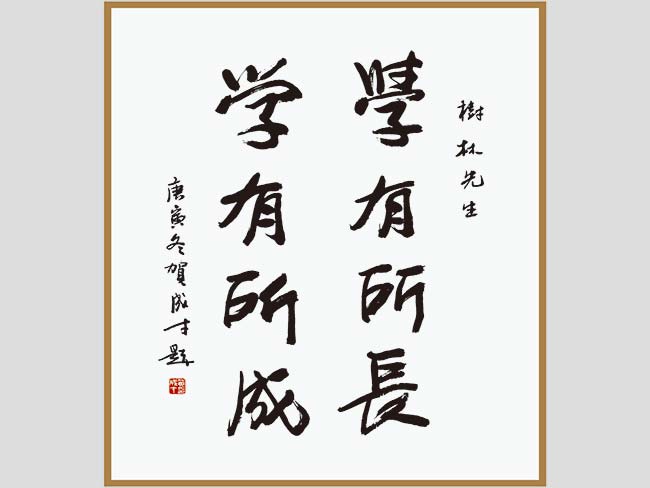 樹林先生
學有所長
学有所成
庚寅冬賀成才題